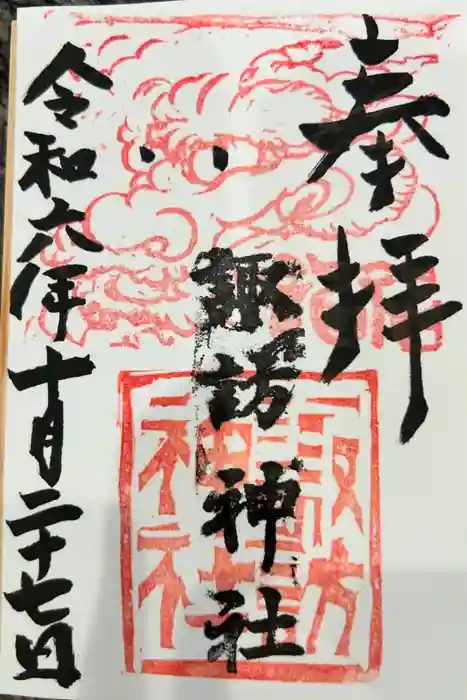 奉拝
諏訪神社
令和六年十月二十七日